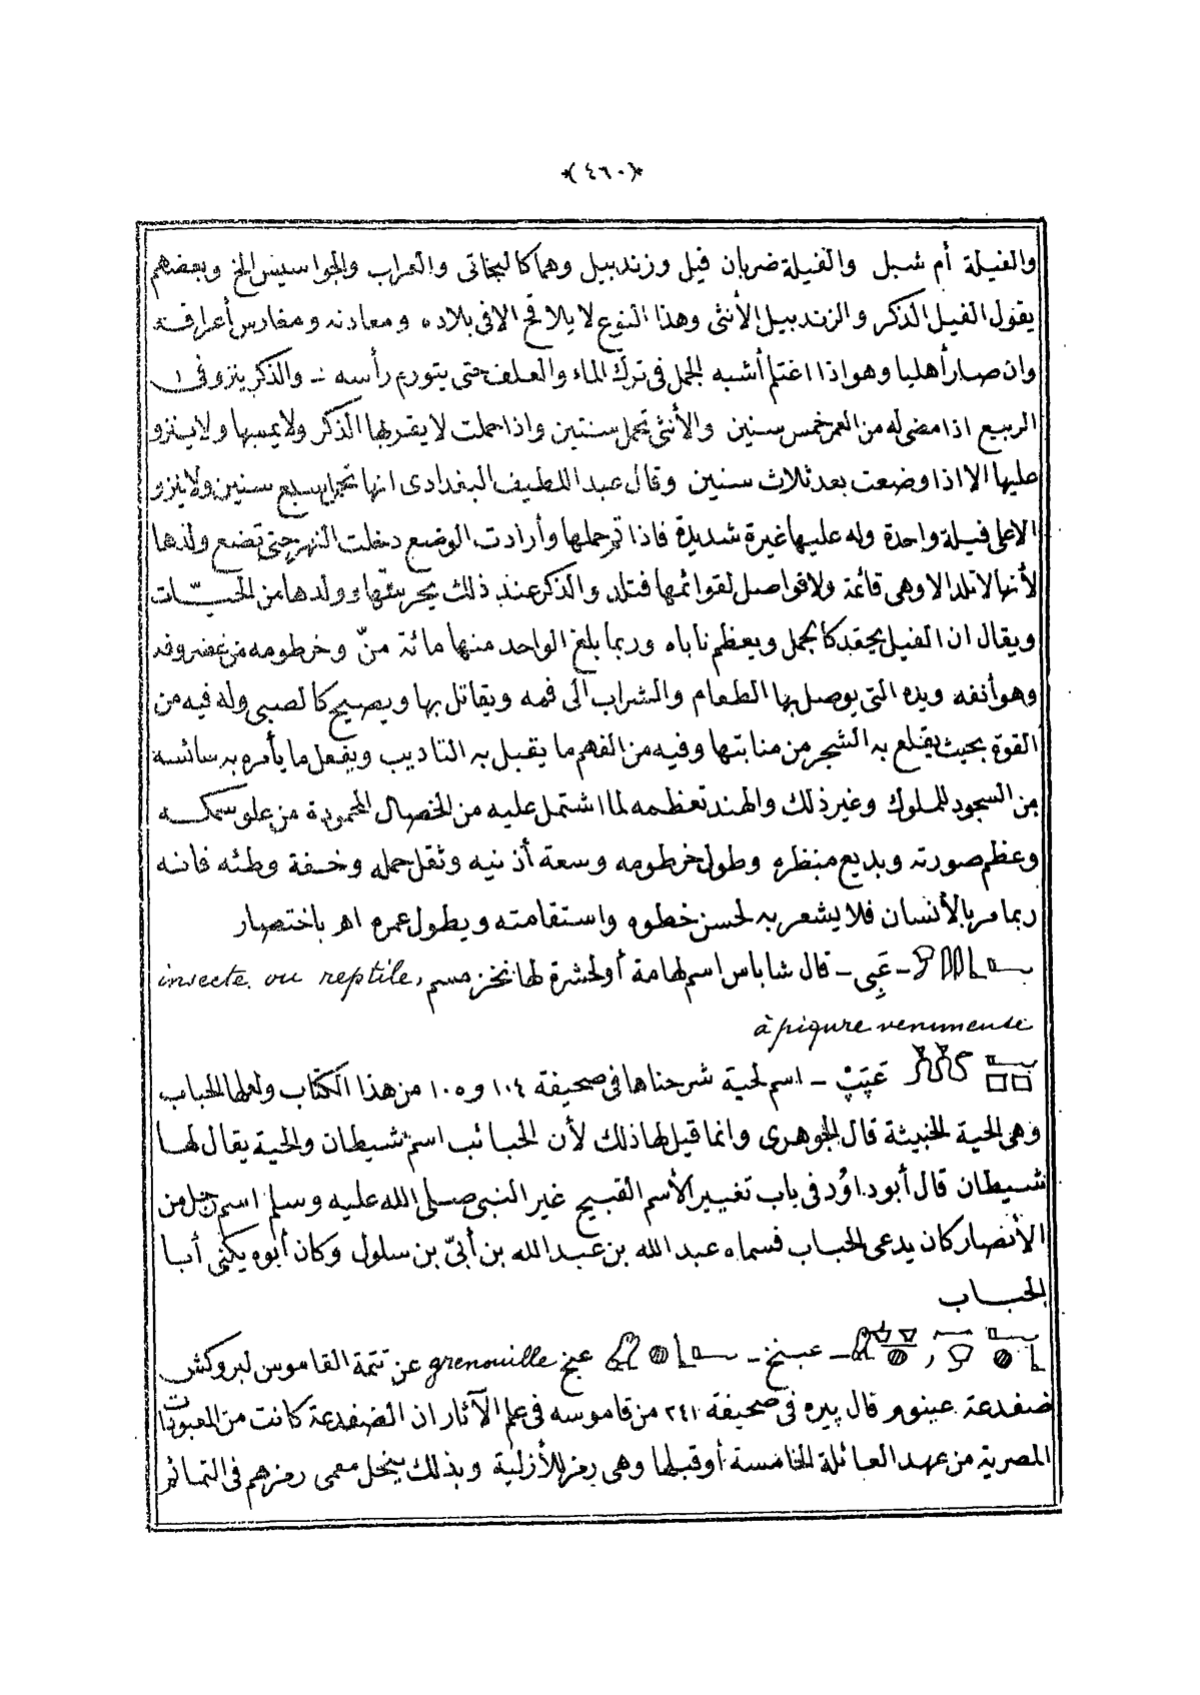 ﴿٤٦٠﴾
والفيلة أم شبل والفيلة ضربان فيل وزندبيل وهما كالبخاتى والعراب والجواسيس الخ وبعضهم
يقول الفيل الذكر والزندبيل الأنثى وهذا النوع لا يلاقح الا فى بلاده ومعادنه ومغارس أعراقه
وان صار أهليا وهو اذا اغتلم أشبه الجمل فى ترك الماء والعلف حتى يتورم رأسه - والذكر ينزو فى
الربيع اذا مضى له من العمر خمس سنين والأنثى تحمل سنتين واذا حملت لا يقربها الذكر ولا يمسها ولا ينزو
عليها الا اذا وضعت بعد ثلاث سنين وقال عبد اللطيف البغدادى انها تحمل سبع سنين ولا ينزو
الا على فيلة واحدة وله عليها غيرة شديدة فاذا تم حملها وأرادت الوضع دخلت النهر حتى تضع ولدها
لأنها لا تلد الا وهى قائمة ولا فواصل لقوائمها فتلد والذكر عند ذلك يحرسها وولدها من الحيّات
ويقال ان الفيل يحقد كالجمل ويعظم ناباه وربما بلغ الواحد منها مائة منّ وخرطومه من غضروف
وهو أنفه ويده التى يوصل بها الطعام والشراب الى فمه ويقاتل بها ويصيح كالصبى وله فيه من
القوة بحيث يقلع به الشجر من منابتها وفيه من الفهم ما يقبل به التاديب ويفعل ما يأمره به سائسه
من السجود للملوك وغير ذلك والهند تعظمه لما اشتمل عليه من الخصال المحمودة من علو سمكه
وعظم صورته وبديع منظره وطول خرطومه وسعة أذنيه وثقل حمله وخفة وطئه فانه
ربما مر بالأنسان فلا يشعر به لحسن خطوه واستقامته ويطول عمره اهـ باختصار
- عَبِى - قال شاباس اسم لهامة أو لحشرة لها نخز مسم, insecte ou reptile
à piqure venimeuse
عَپَپْ - اسم لحية شرحناها فى صحيفة ١٠٤ و ١٠٥ من هذا الكتاب ولعلها الحباب
وهى الحية الخبيثة قال الجوهرى وانما قيل لها ذلك لأن الحبائب اسم شيطان والحية يقال لها
شيطان قال أبو داوُد فى باب تغيير الأسم القبيح غير النبى صلى الله عليه وسلم اسم رجل من
الأنصار كان يدعى الحباب فسماه عبد الله بن عبد الله بن أبىّ بن سلول وكان أبوه يكنى أبا
الحباب
- عبنخ - عبخ grenouille عن تتمة القاموس لبروكش
ضفدعة عبنوم قال پيره فى صحيفة ٢٤١ من قاموسه فى علم الآثار ان الضفدعة كانت من المعبودات
المصرية من عهد العائلة الخامسة أو قبلها وهى رمز للأزلية وبذلك ينحل معمى رمزهم فى التماثم